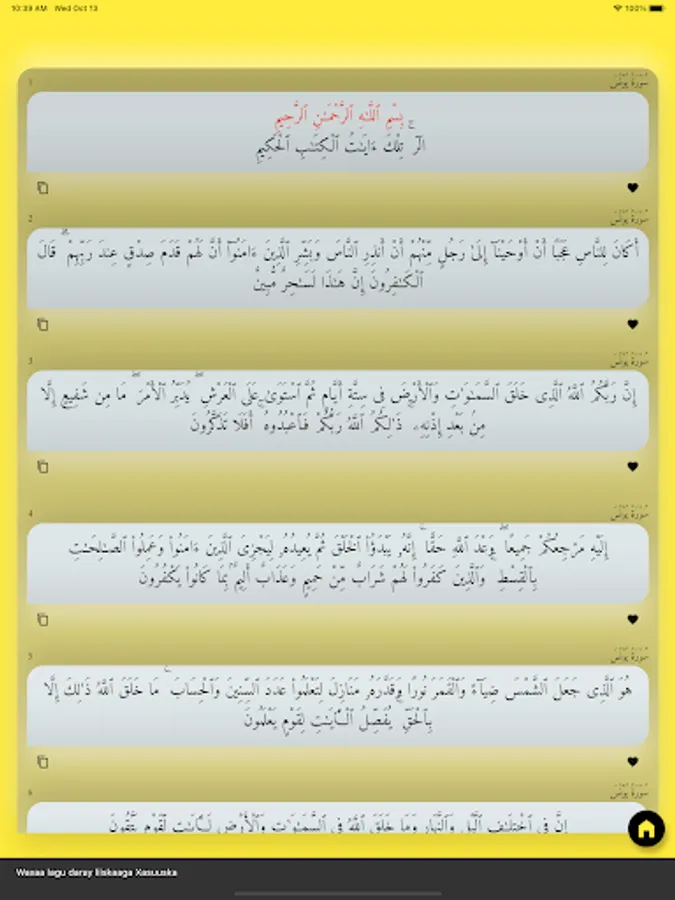 10:39 AM Wed Oct 13
100%
1
سُورَةُ يُونُسَ
بِسْمِ ٱللَّهِ ٱلرَّحْمَـٰنِ ٱلرَّحِيمِ
الٓر ۚ تِلْكَ ءَايَـٰتُ ٱلْكِتَـٰبِ ٱلْحَكِيمِ
2
سُورَةُ يُونُسَ
أَكَانَ لِلنَّاسِ عَجَبًا أَنْ أَوْحَيْنَآ إِلَىٰ رَجُلٍ مِّنْهُمْ أَنْ أَنذِرِ ٱلنَّاسَ وَبَشِّرِ ٱلَّذِينَ ءَامَنُوٓا۟ أَنَّ لَهُمْ قَدَمَ صِدْقٍ عِندَ رَبِّهِمْ ۗ قَالَ
ٱلْكَـٰفِرُونَ إِنَّ هَـٰذَا لَسَـٰحِرٌ مُّبِينٌ
3
سُورَةُ يُونُسَ
إِنَّ رَبَّكُمُ ٱللَّهُ ٱلَّذِى خَلَقَ ٱلسَّمَـٰوَٰتِ وَٱلْأَرْضَ فِى سِتَّةِ أَيَّامٍ ثُمَّ ٱسْتَوَىٰ عَلَى ٱلْعَرْشِ ۖ يُدَبِّرُ ٱلْأَمْرَ ۖ مَا مِن شَفِيعٍ إِلَّا
مِنۢ بَعْدِ إِذْنِهِۦ ۚ ذَٰلِكُمُ ٱللَّهُ رَبُّكُمْ فَٱعْبُدُوهُ ۚ أَفَلَا تَذَكَّرُونَ
4
سُورَةُ يُونُسَ
إِلَيْهِ مَرْجِعُكُمْ جَمِيعًا ۖ وَعْدَ ٱللَّهِ حَقًّا ۚ إِنَّهُۥ يَبْدَؤُا۟ ٱلْخَلْقَ ثُمَّ يُعِيدُهُۥ لِيَجْزِىَ ٱلَّذِينَ ءَامَنُوا۟ وَعَمِلُوا۟ ٱلصَّـٰلِحَـٰتِ
بِٱلْقِسْطِ ۚ وَٱلَّذِينَ كَفَرُوا۟ لَهُمْ شَرَابٌ مِّنْ حَمِيمٍ وَعَذَابٌ أَلِيمٌۢ بِمَا كَانُوا۟ يَكْفُرُونَ
5
سُورَةُ يُونُسَ
هُوَ ٱلَّذِى جَعَلَ ٱلشَّمْسَ ضِيَآءً وَٱلْقَمَرَ نُورًا وَقَدَّرَهُۥ مَنَازِلَ لِتَعْلَمُوا۟ عَدَدَ ٱلسِّنِينَ وَٱلْحِسَابَ ۚ مَا خَلَقَ ٱللَّهُ ذَٰلِكَ إِلَّا
بِٱلْحَقِّ ۚ يُفَصِّلُ ٱلْـَٔايَـٰتِ لِقَوْمٍ يَعْلَمُونَ
6
سُورَةُ يُونُسَ
إِنَّ فِى ٱخْتِلَـٰفِ ٱلَّيْلِ وَٱلنَّهَارِ وَمَا خَلَقَ ٱللَّهُ فِى ٱلسَّمَـٰوَٰتِ وَٱلْأَرْضِ لَـَٔايَـٰتٍ لِّقَوْمٍ يَتَّقُونَ
Waxaa lagu daray liiskaaga Xasuuska